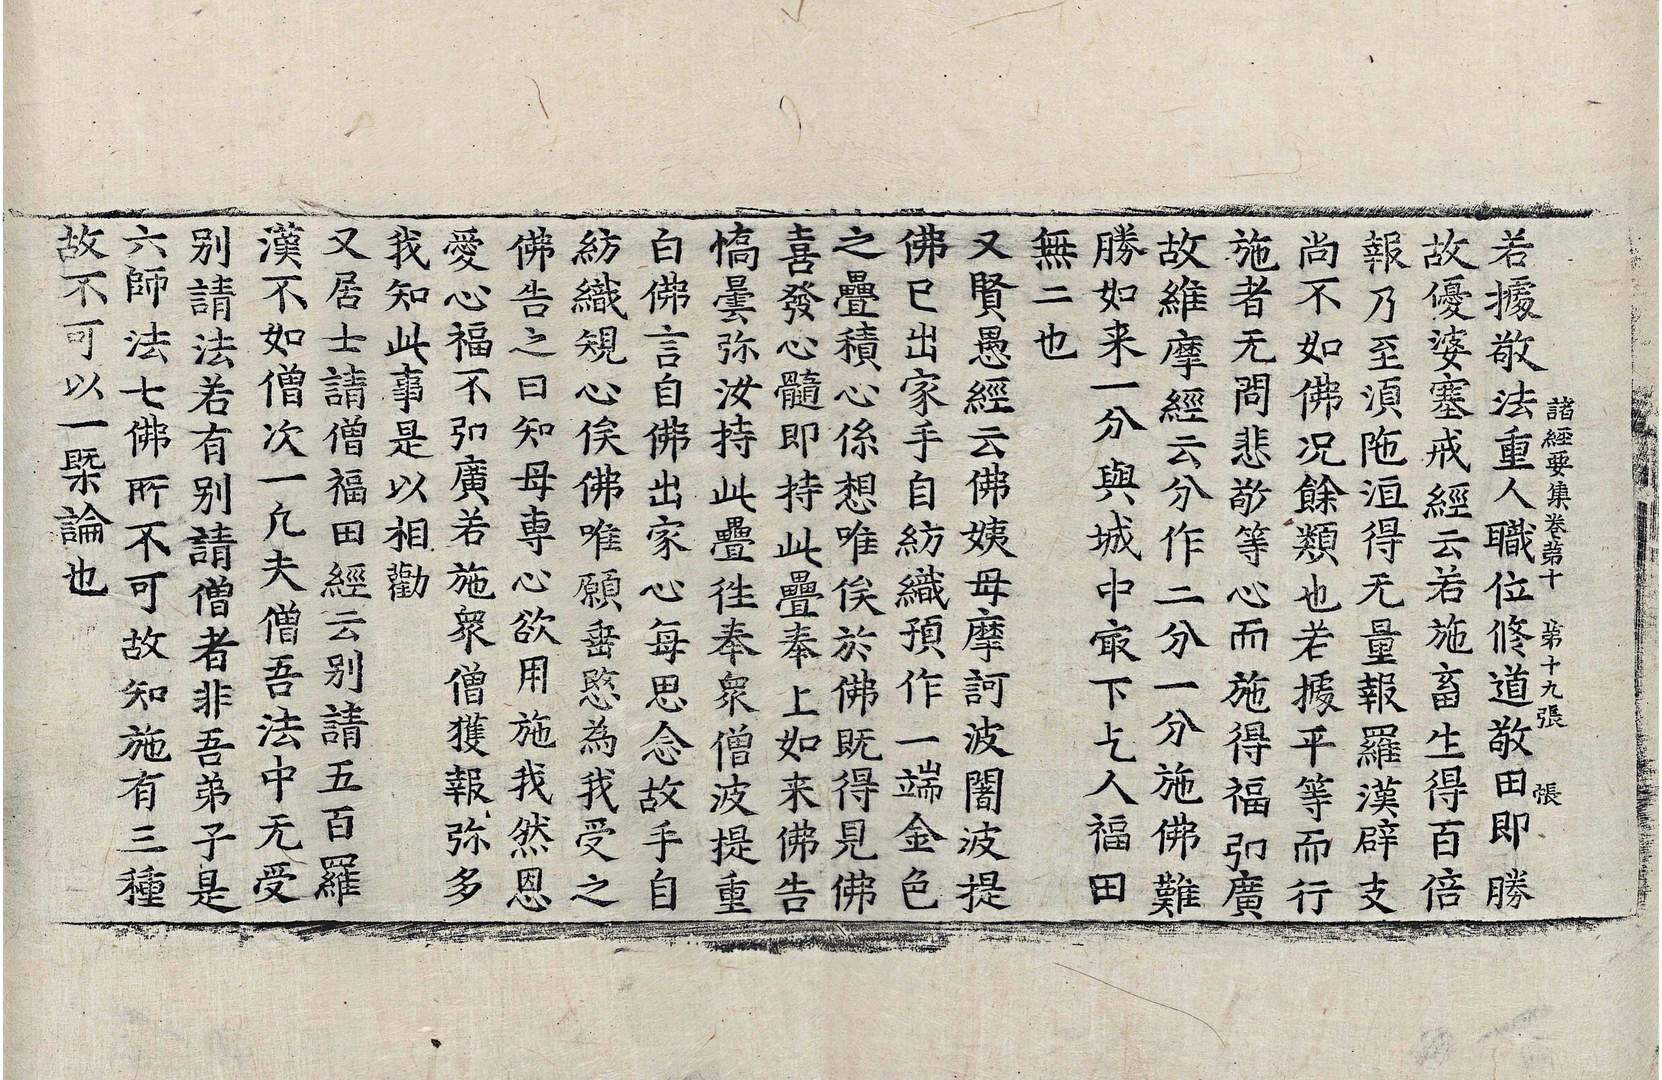 諸經要集卷第十　第十九張　悵
若據敬法重人職位修道敬田即勝
故優婆塞戒經云若施畜生得百倍
報乃至湏陁洹得无量報羅漢辟支
尚不如佛况餘類也若據平等而行
施者无問悲敬等心而施得福弘廣
故維摩經云分作二分一分施佛難
勝如来一分與城中㝡下乞人福田
無二也
又賢愚經云佛姨母摩訶波闍波提
佛已出家手自紡織預作一端金色
之疊積心係想唯俟於佛既得見佛
喜發心髓即持此疊奉上如来佛告
憍曇弥汝持此疊徃奉衆僧波提重
白佛言自佛出家心每思念故手自
紡織規心俟佛唯願垂愍為我受之
佛告之曰知母専心欲用施我然恩
愛心福不弘廣若施衆僧獲報弥多
我知此事是以相勸
又居士請僧福田經云别請五百羅
漢不如僧次一凢夫僧吾法中无受
别請法若有别請僧者非吾弟子是
六師法七佛所不可故知施有三種
故不可以一槩論也